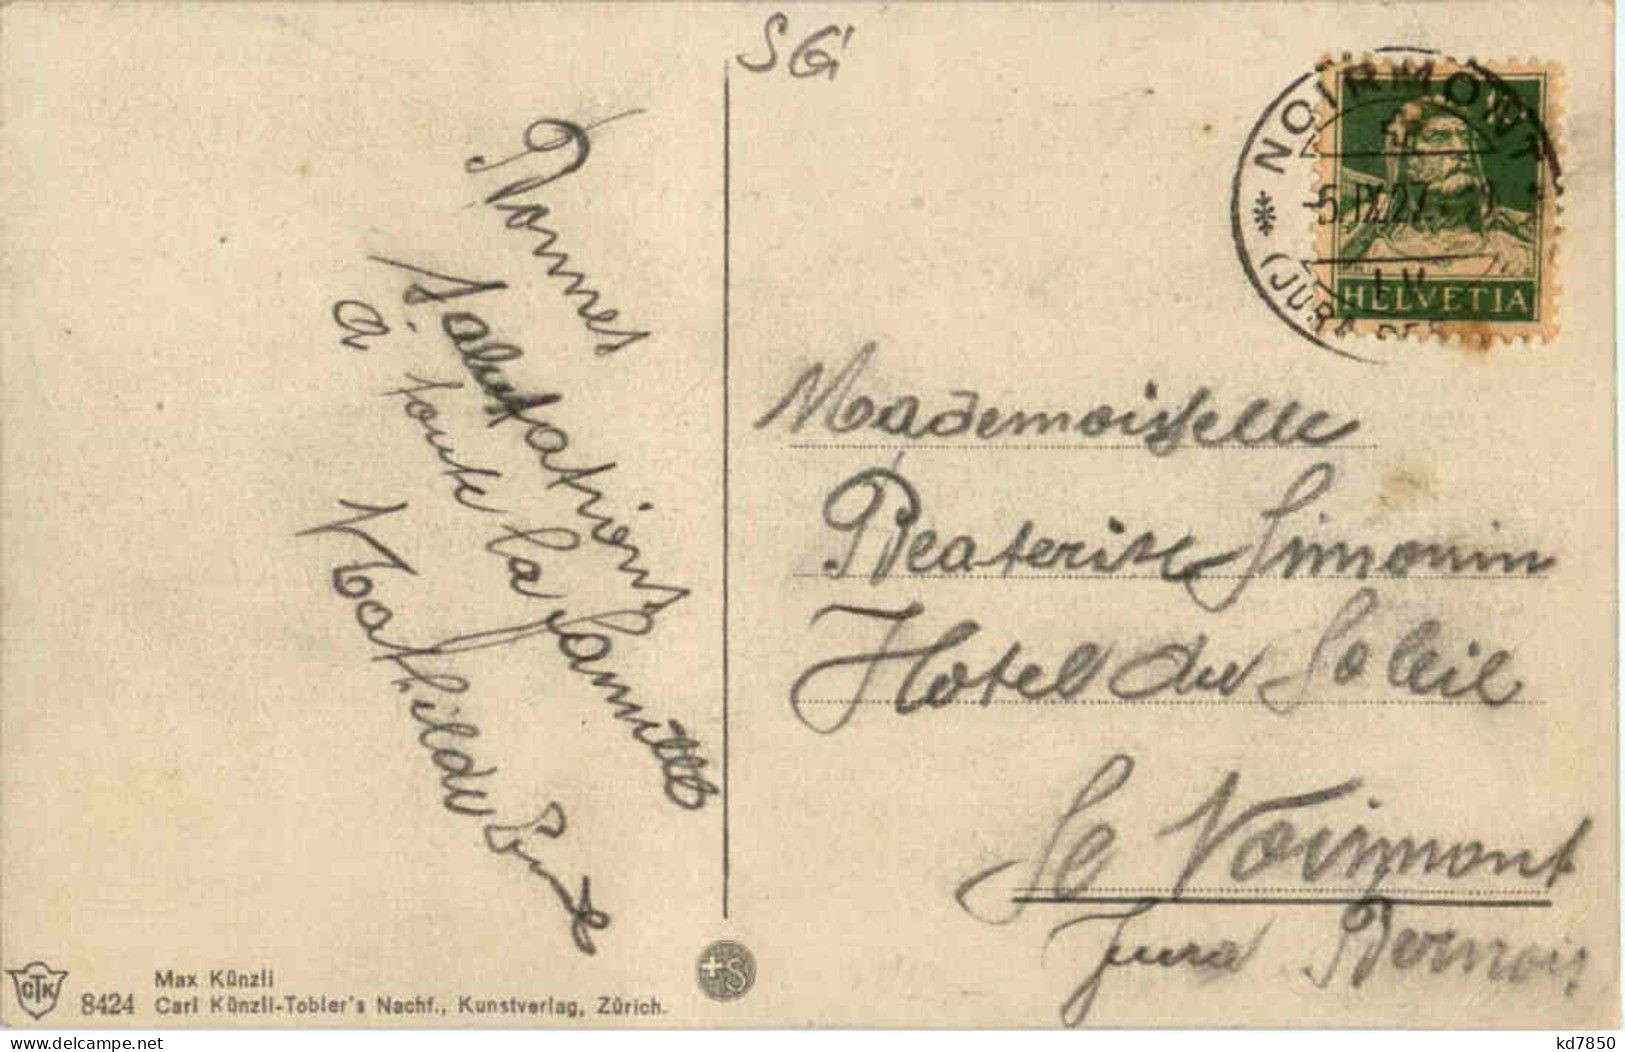 SG
Bonnes
Salutations
à toute la famille
Mathilde
Mademoiselle
Beaterise Simonin
Hotel du Soleil
Le Noirmont
Jura Bernois
NOIRMONT
-5.IX.27
(JURA BER
HELVETIA
CTK
8424
Max Künzli
Carl Künzli-Tobler's Nachf., Kunstverlag, Zürich.
+S
kd7850